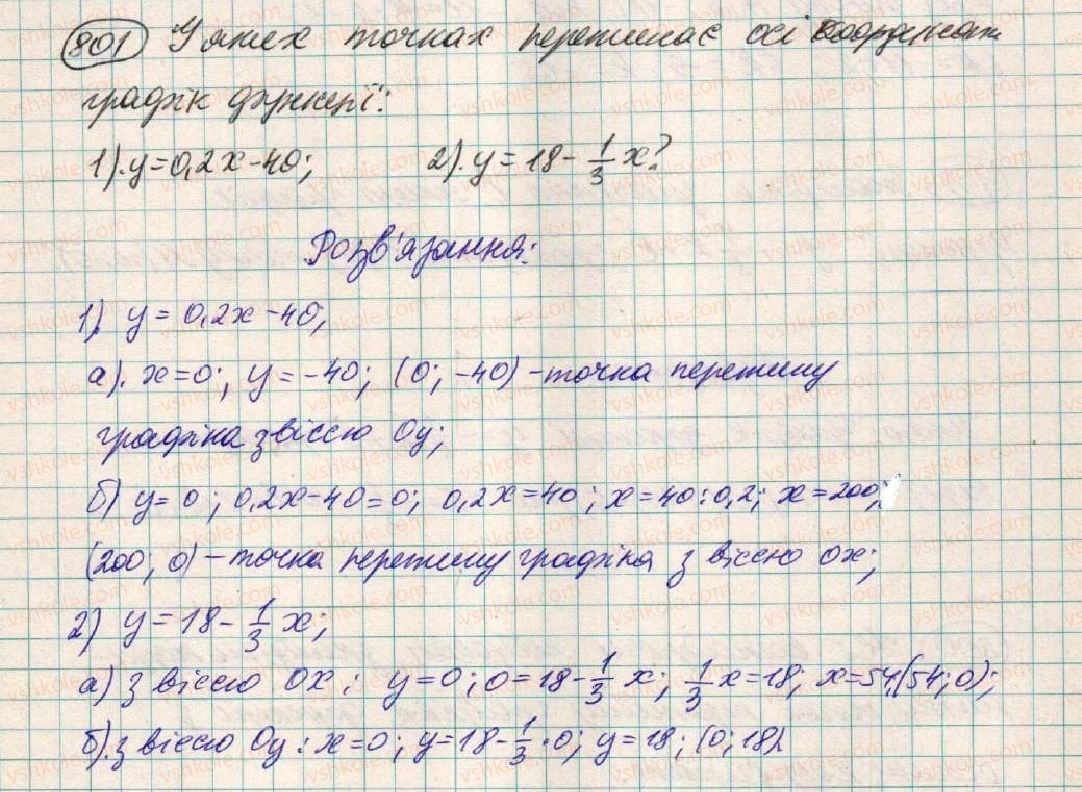 801 У яких точках перетинає осі координат
графік функції:
1). y=0,2x-40; 2). y=18-1/3x?
Розв'язання:
1) y=0,2x-40;
а). x=0; y=-40; (0; -40) -точка перетину
графіка з віссю Oy;
б) y=0; 0,2x-40=0; 0,2x=40; x=40:0,2; x=200;
(200; 0) -точка перетину графіка з віссю ox;
2) y=18-1/3x;
а) з віссю OX: y=0; 0=18-1/3x; 1/3x=18; x=54; (54; 0);
б). з віссю Oy: x=0; y=18-1/3·0; y=18; (0; 18).